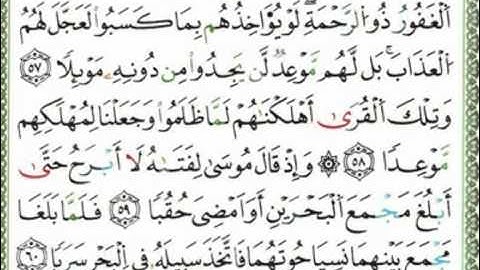 ٱلْغَفُورُ ذُو ٱلرَّحْمَةِ ۖ لَوْ يُؤَاخِذُهُم بِمَا كَسَبُوا۟ لَعَجَّلَ لَهُمُ
ٱلْعَذَابَ ۚ بَل لَّهُم مَّوْعِدٌ لَّن يَجِدُوا۟ مِن دُونِهِۦ مَوْئِلًا ٥٧
وَتِلْكَ ٱلْقُرَىٰٓ أَهْلَكْنَٰهُمْ لَمَّا ظَلَمُوا۟ وَجَعَلْنَا لِمَهْلِكِهِم
مَّوْعِدًا ٥٨ ۞ وَإِذْ قَالَ مُوسَىٰ لِفَتَىٰهُ لَآ أَبْرَحُ حَتَّىٰٓ
أَبْلُغَ مَجْمَعَ ٱلْبَحْرَيْنِ أَوْ أَمْضِىَ حُقُبًا ٥٩ فَلَمَّا بَلَغَا
مَجْمَعَ بَيْنِهِمَا نَسِيَا حُوتَهُمَا فَٱتَّخَذَ سَبِيلَهُۥ فِى ٱلْبَحْرِ سَرَبًا ٦٠